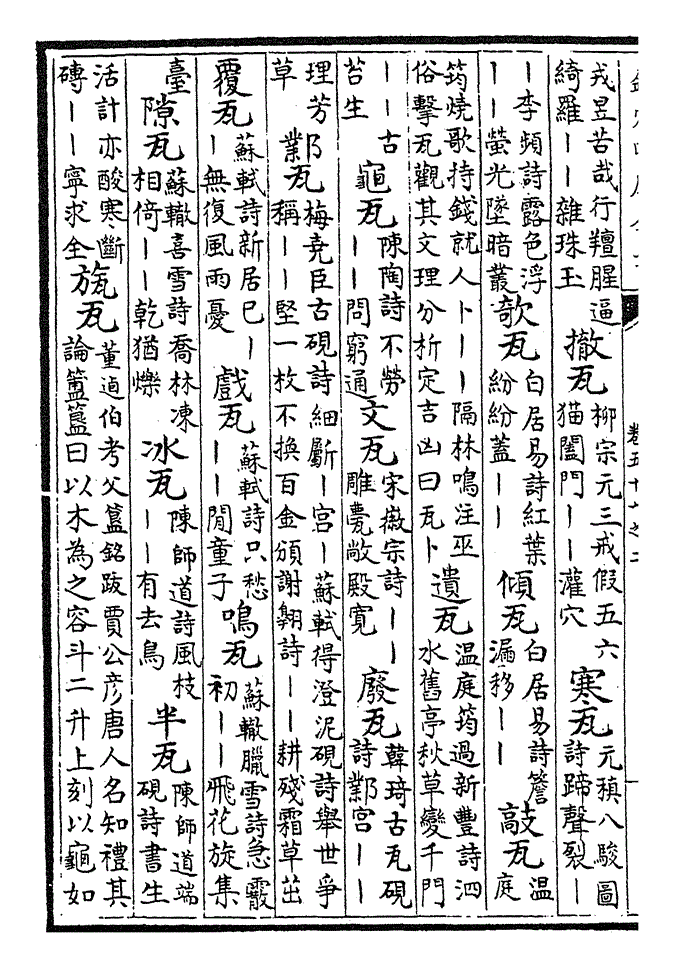 戎昱苦哉行羶腥逼綺羅｜｜雜珠玉 撤瓦 柳宗元三戒假五六猫闔門｜｜灌穴 寒瓦 元稹八駿圖詩蹄聲裂｜
｜李頻詩露色浮｜｜螢光墜暗叢 欹瓦 白居易詩紅葉紛紛蓋｜｜ 傾瓦 白居易詩簷漏移｜｜ 敲瓦 温庭
筠燒歌持錢就人卜｜｜隔林鳴注巫俗擊瓦觀其文理分析定吉凶曰瓦卜 遺瓦 温庭筠過新豐詩泗水舊亭秋草變千門
｜｜古苔生 龜瓦 陳陶詩不勞｜｜問窮通 文瓦 宋徽宗詩｜｜雕甍敞殿寬 廢瓦 韓琦古瓦硯詩鄴宮｜｜
理芳草 鄴瓦 梅堯臣古硯詩細斸｜宫｜蘇軾得澄泥硯詩舉世爭稱｜｜堅一枚不換百金頒謝翱詩｜｜耕殘霜草茁
覆瓦 蘇軾詩新居已｜｜無復風雨憂 戲瓦 蘇軾詩只愁｜｜閒童子 鳴瓦 蘇轍臘雪詩急霰初｜｜飛花旋集
臺 隙瓦 蘇轍喜雪詩喬林凍相倚｜｜乾猶爍 冰瓦 陳師道詩風枝｜｜有去鳥 半瓦 陳師道端硯詩書生
活計亦酸寒斷磚｜｜寧求全 旊瓦 董逌伯考父簋銘跋賈公彦唐人名知禮其論簠簋曰以木為之容斗二升上刻以龜如